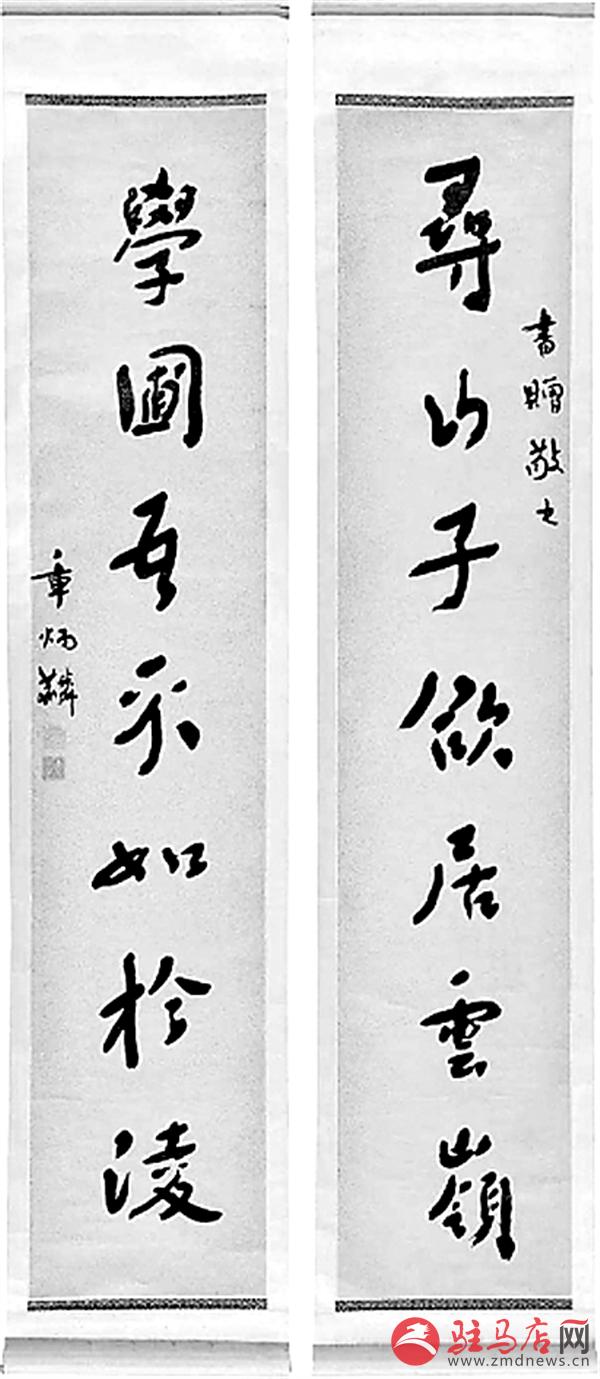 書贈敬之
尋山子欲居雲嶺
學圃吾不如於淩
章炳麟
驻马店网
www.zmdnews.cn